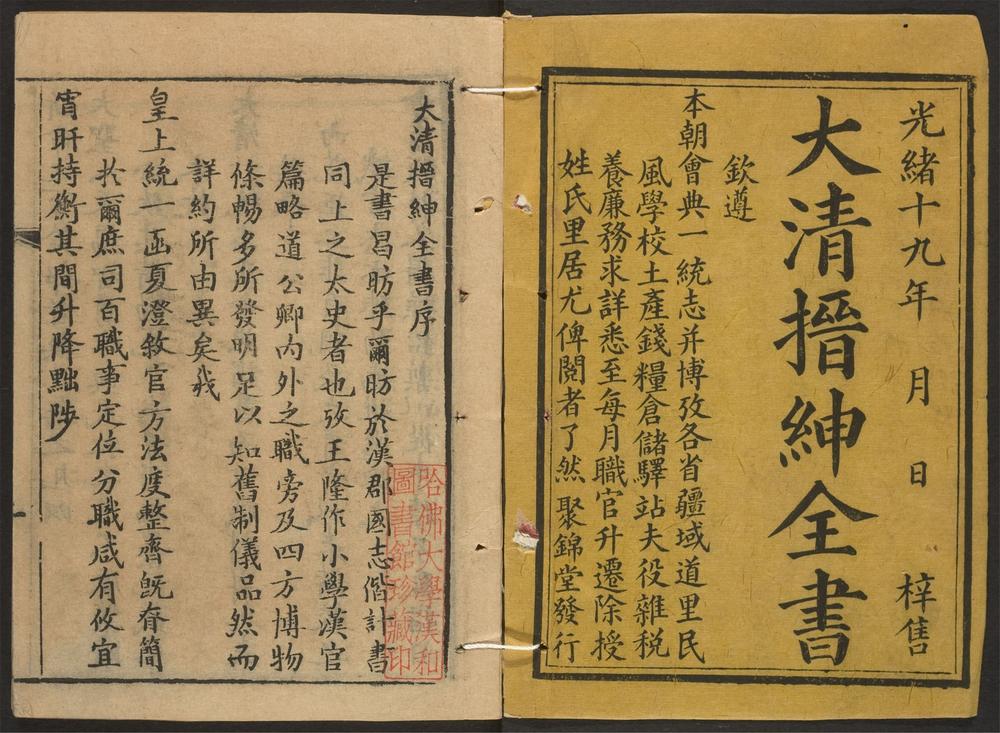 光緒十九年 月 日 梓售
大清搢紳全書
欽遵
本朝會典一統志并博攷各省疆域道里民
風學校土產錢糧倉儲驛站夫役雜税
養廉務求詳悉至每月職官升遷除授
姓氏里居尤俾閱者了然 聚錦堂發行
大清搢紳全書序
是書昌昉乎爾昉於漢郡國志偕計書
同上之太史者也攷王隆作小學漢官
篇略道公卿內外之職旁及四方博物
條暢多所發明足以知舊制儀品然而
詳約所由異矣我
皇上統一函夏澄敘官方法度整齊旣脊簡
扵爾庶司百職事定位分職咸有攸宜
宵旰持衡其間升降黜陟
哈佛大學漢和
圖書館珍藏印